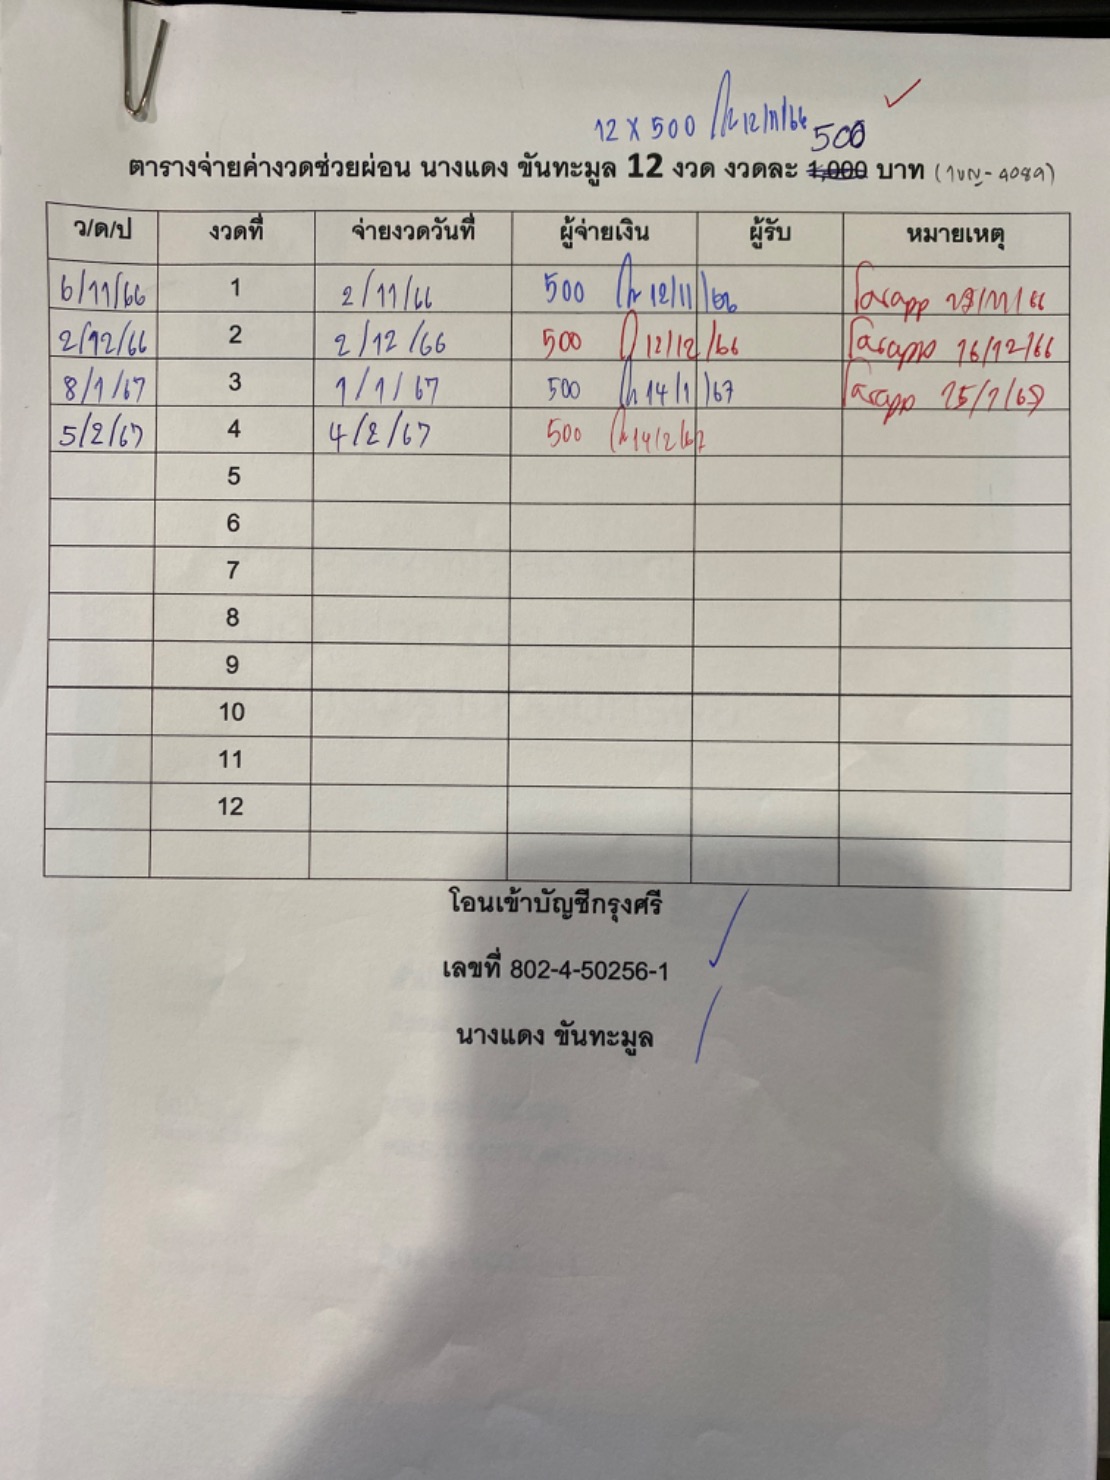 12 x 500 12/11/66
500
ตารางจ่ายค่างวดช่วยผ่อน นางแดง ขันทะมูล 12 งวด งวดละ 1,000 บาท (1ขญ-4089)
ว/ด/ป งวดที่ จ่ายงวดวันที่ ผู้จ่ายเงิน ผู้รับ หมายเหตุ
6/11/66 1 2/11/66 500 12/11/66
2/12/66 2 2/12/66 500 12/12/66 16/12/66
8/1/67 3 1/1/67 500 14/1/67
5/2/67 4 4/2/67 500 14/2/67
5
6
7
8
9
10
11
12
โอนเข้าบัญชีกรุงศรี
เลขที่ 802-4-50256-1
นางแดง ขันทะมูล